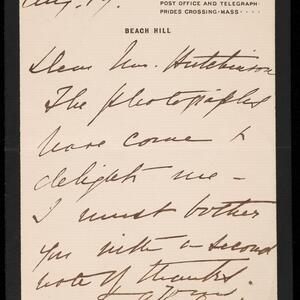 Aug. 19.
POST OFFICE AND TELEGRAPH
PRIDES CROSSING-MASS····
BEACH HILL
Dear Mrs. Hutchinson
The photographs
have come to
delight me –
I must bother
you with a second
note of thanks.